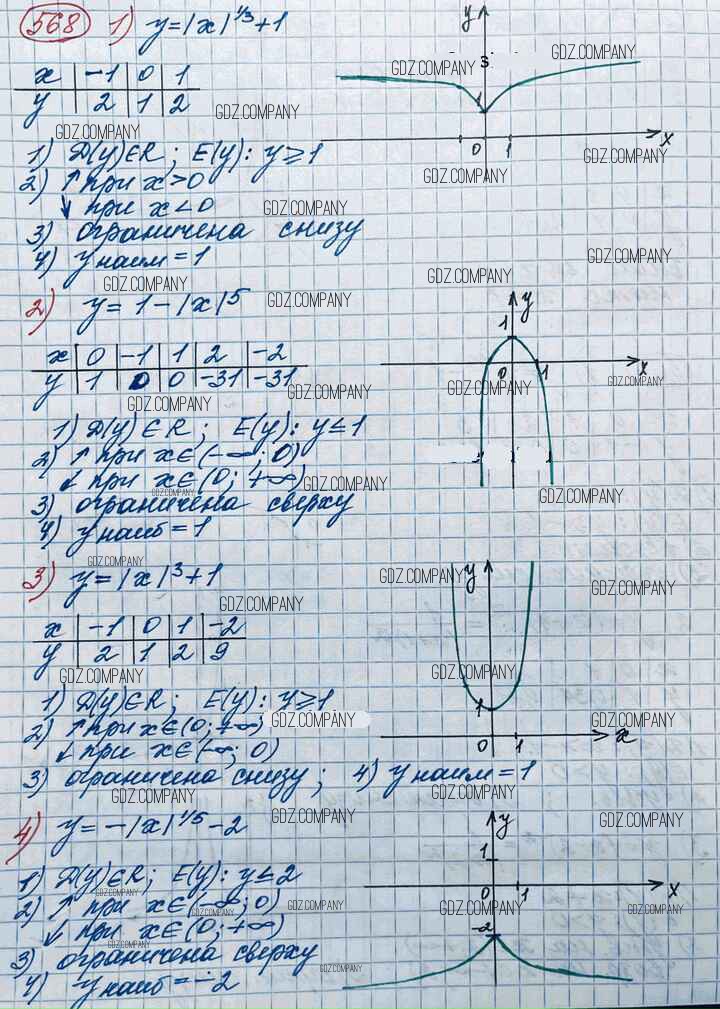 568 1) y=|x|^1/3+1
x | -1 | 0 | 1
y | 2 | 1 | 2
1) D(y)∈R; E(y): y≥1
2) ↑ при x>0
↓ при x<0
3) ограничена снизу
4) y наим = 1
y
3
1
0 1 x
2) y = 1-|x|^5
x | 0 | -1 | 1 | 2 | -2
y | 1 | 0 | 0 | -31 | -31
1) D(y)∈R; E(y): y≤1
2) ↑ при x∈(-∞; 0)
↓ при x∈(0; +∞)
3) ограничена сверху
4) y наиб = 1
y
1
0 1 x
3) y=|x|^3+1
x | -1 | 0 | 1 | -2
y | 2 | 1 | 2 | 9
1) D(y)∈R; E(y): y≥1
2) ↑ при x∈(0; +∞)
↓ при x∈(-∞; 0)
3) ограничена снизу; 4) y наим = 1
y
1
0 1 x
4) y=-|x|^1/5-2
1) D(y)∈R; E(y): y≤2
2) ↑ при x∈(-∞; 0)
↓ при x∈(0; +∞)
3) ограничена сверху
4) y наиб = -2
y
1
0 1 x
-2
GDZ.COMPANY